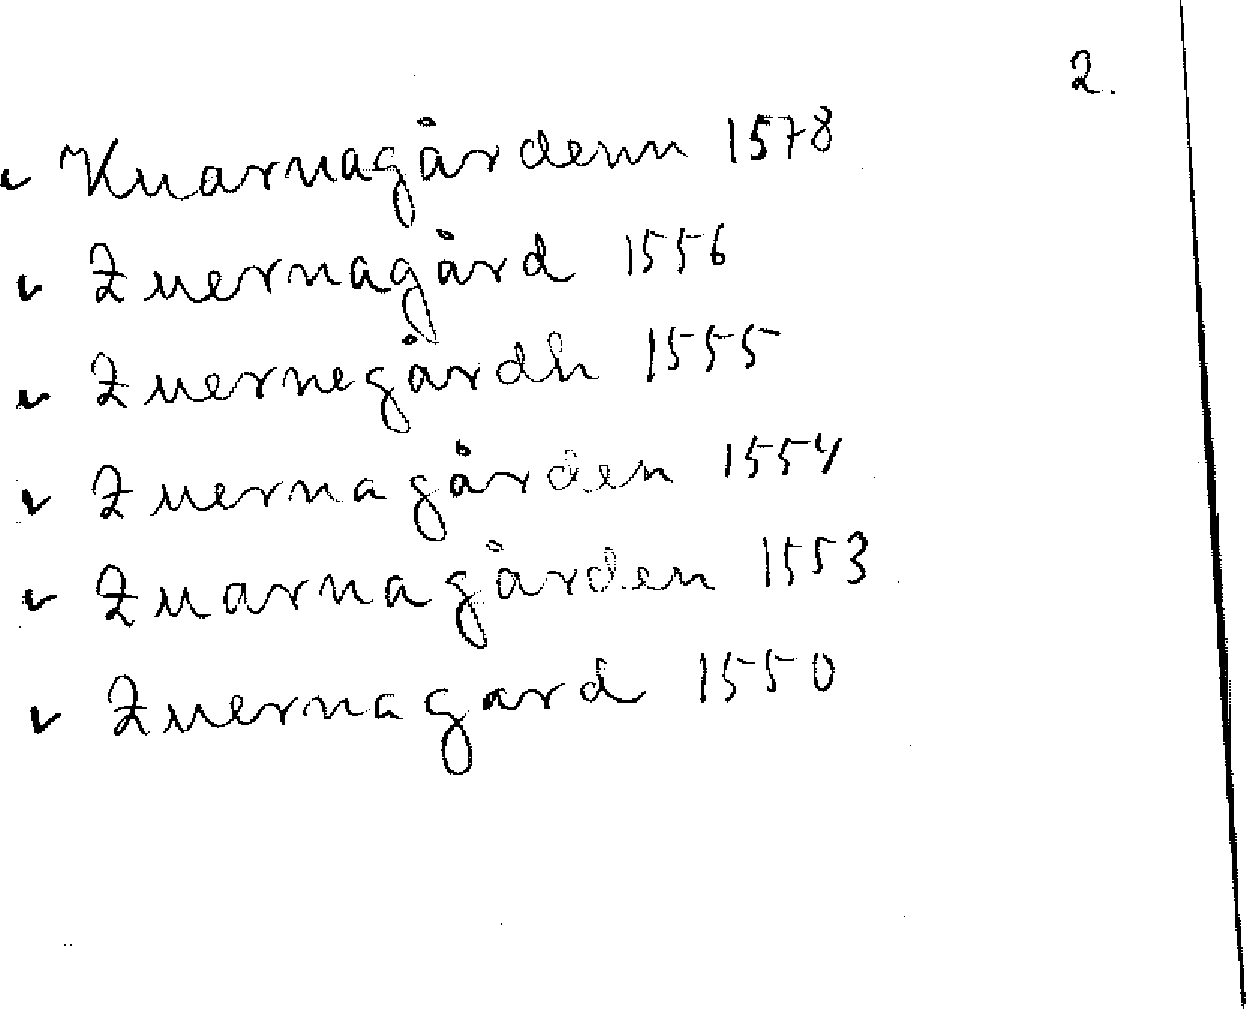 2.
Kuarnagårdenn 1578
Quernagård 1556
Quernegårdh 1555
Quernagården 1554
Quarnagården 1553
Quernagard 1550